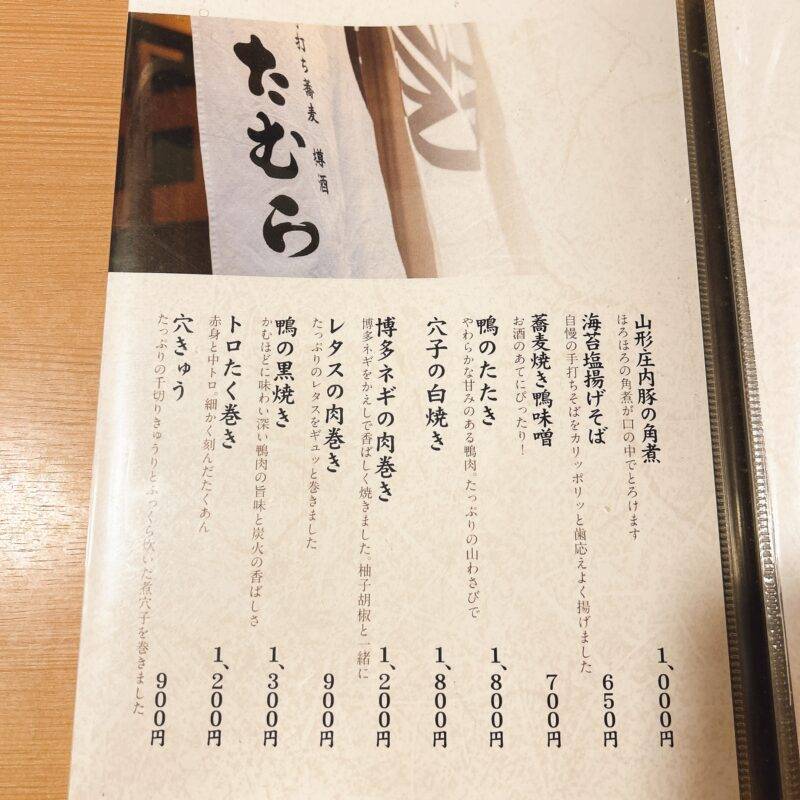 手打ち蕎麦 樽酒
たむら
山形庄内豚の角煮
ほろほろの角煮が口の中でとろけます
1、000円
海苔塩揚げそば
自慢の手打ちそばをカリッポリッと歯応えよく揚げました
650円
蕎麦焼き鴨味噌
お酒のあてにぴったり!
700円
鴨のたたき
やわらかな甘みのある鴨肉。たっぷりの山わさびで
1、800円
穴子の白焼き
1、800円
博多ネギの肉巻き
博多ネギをかえしで香ばしく焼きました。柚子胡椒と一緒に
1、200円
レタスの肉巻き
たっぷりのレタスをギュッと巻きました
900円
鴨の黒焼き
かむほどに味わい深い鴨肉の旨味と炭火の香ばしさ
1、300円
トロたく巻き
赤身と中トロ。細かく刻んだたくあん
1、200円
穴きゅう
たっぷりの千切りきゅうりとふっくら炊いた煮穴子を巻きました
900円